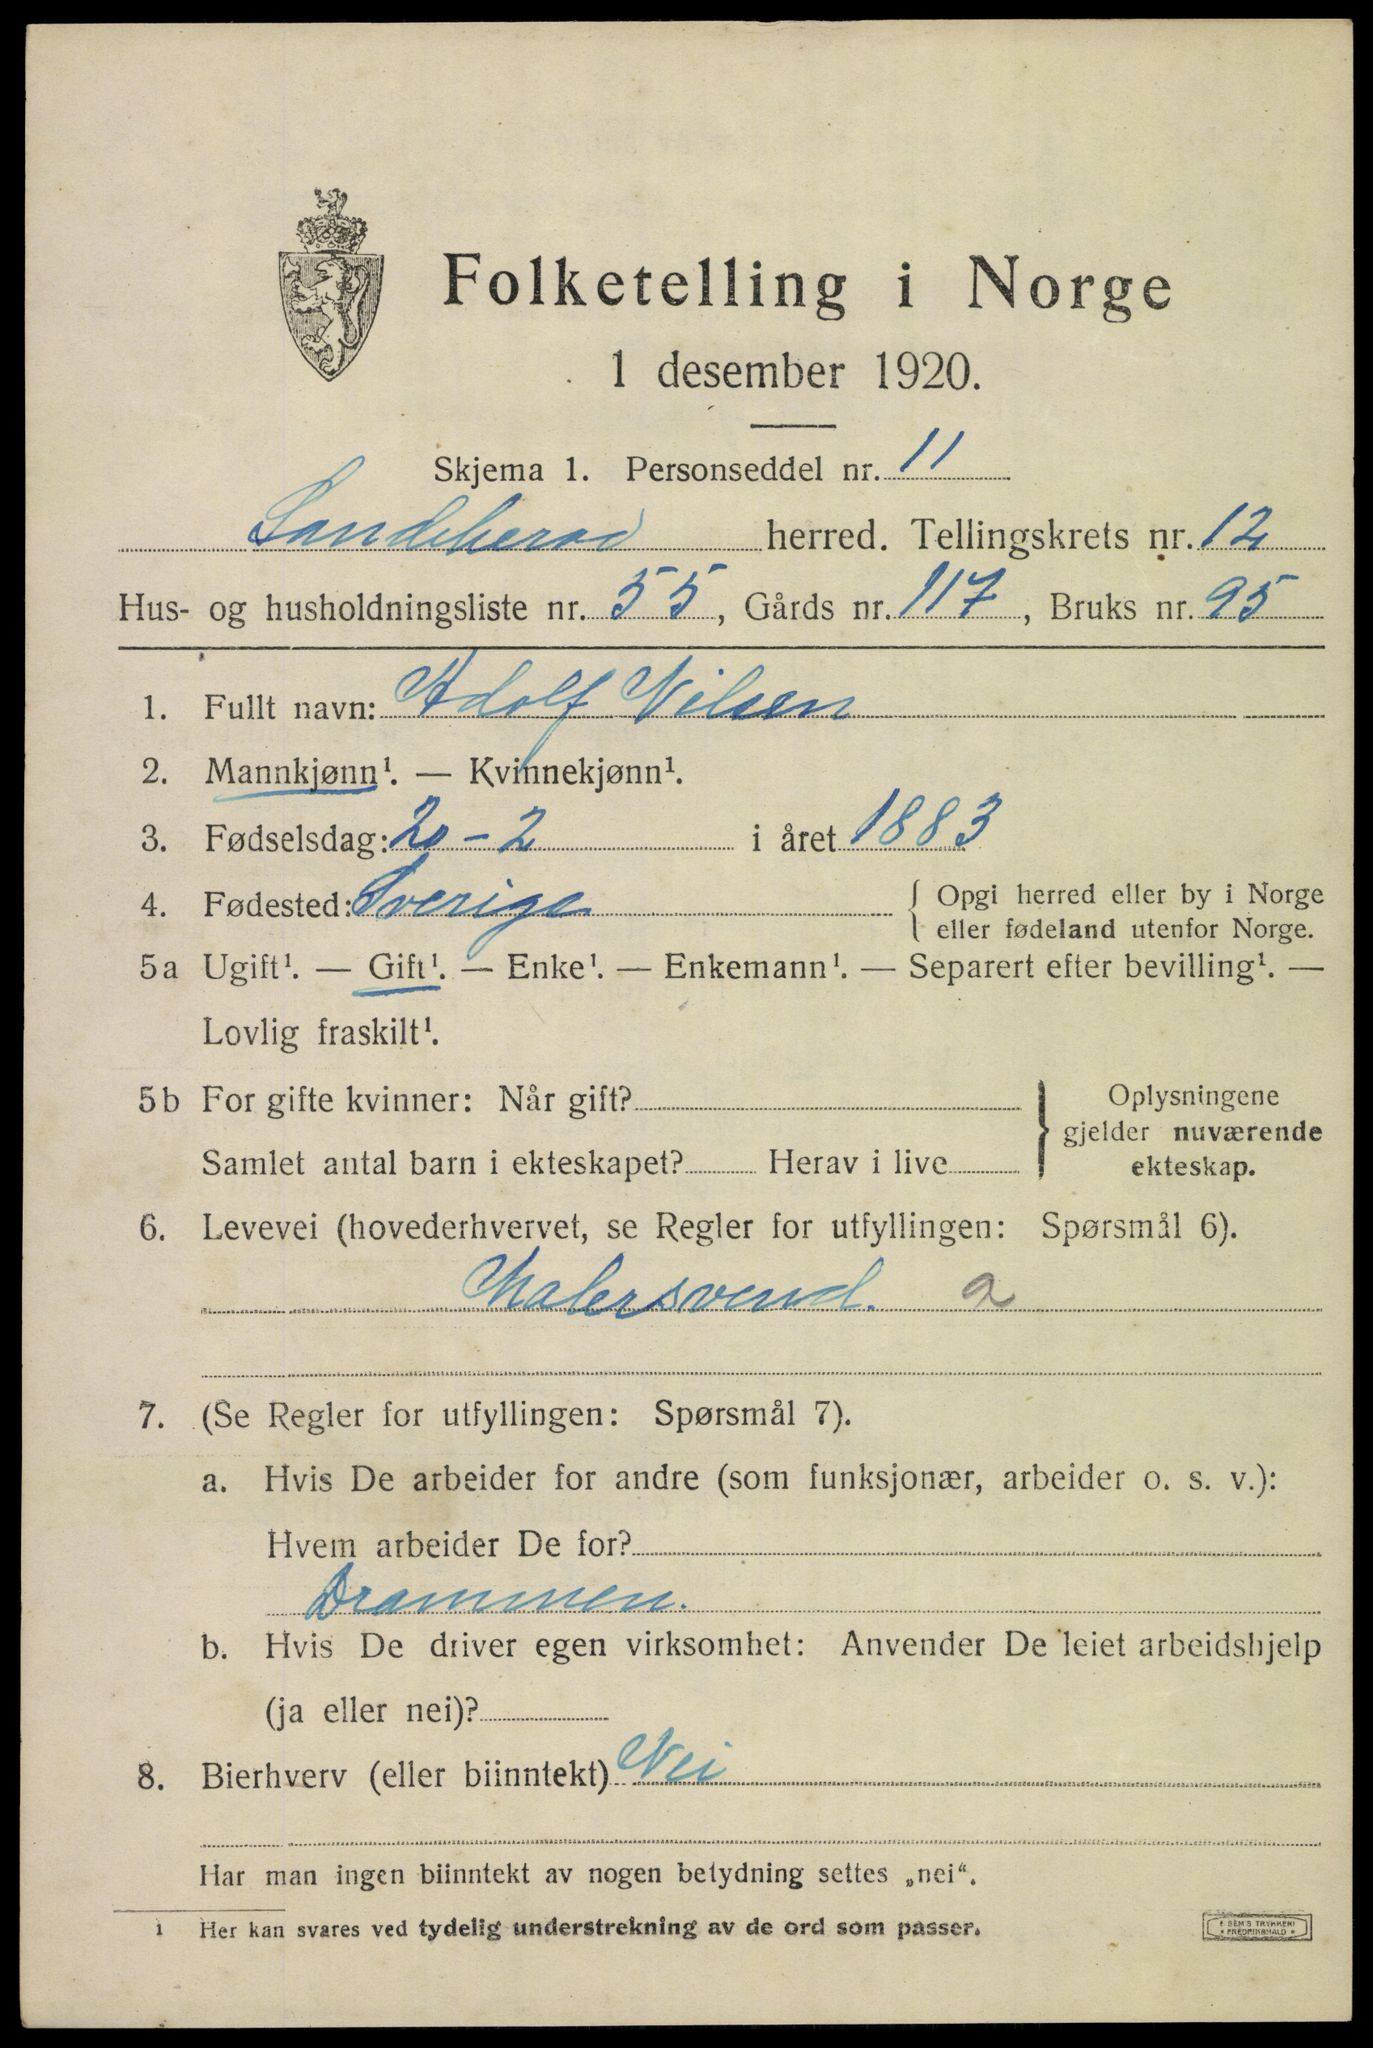 Folketelling i Norge
1 desember 1920.
Skjema 1. Personseddel nr. 11
Sandeherad herred. Tellingskrets nr. 12
Hus- og husholdningsliste nr. 55, Gårds nr. 117, Bruks nr. 95
1. Fullt navn: Adolf Nilsen
2. Mannkjønn¹. — Kvinnekjønn¹.
3. Fødselsdag: 20-2 i året 1883
4. Fødested: Sverige { Opgi herred eller by i Norge
eller fødeland utenfor Norge.
5a Ugift¹. — Gift¹. — Enke¹. — Enkemann¹. — Separert efter bevilling¹. —
Lovlig fraskilt¹.
5b For gifte kvinner: Når gift?
Samlet antal barn i ekteskapet? Herav i live
} Oplysningene
gjelder nuværende
ekteskap.
6. Levevei (hovederhvervet, se Regler for utfyllingen: Spørsmål 6).
Malersvend. a
7. (Se Regler for utfyllingen: Spørsmål 7).
a. Hvis De arbeider for andre (som funksjonær, arbeider o. s. v.):
Hvem arbeider De for?
Drammen.
b. Hvis De driver egen virksomhet: Anvender De leiet arbeidshjelp
(ja eller nei)?
8. Bierhverv (eller biinntekt) Nei
Har man ingen biinntekt av nogen betydning settes „nei“.
1 Her kan svares ved tydelig understrekning av de ord som passer.
E. SEM'S TRYKKERI
• FREDRIKSHALD •